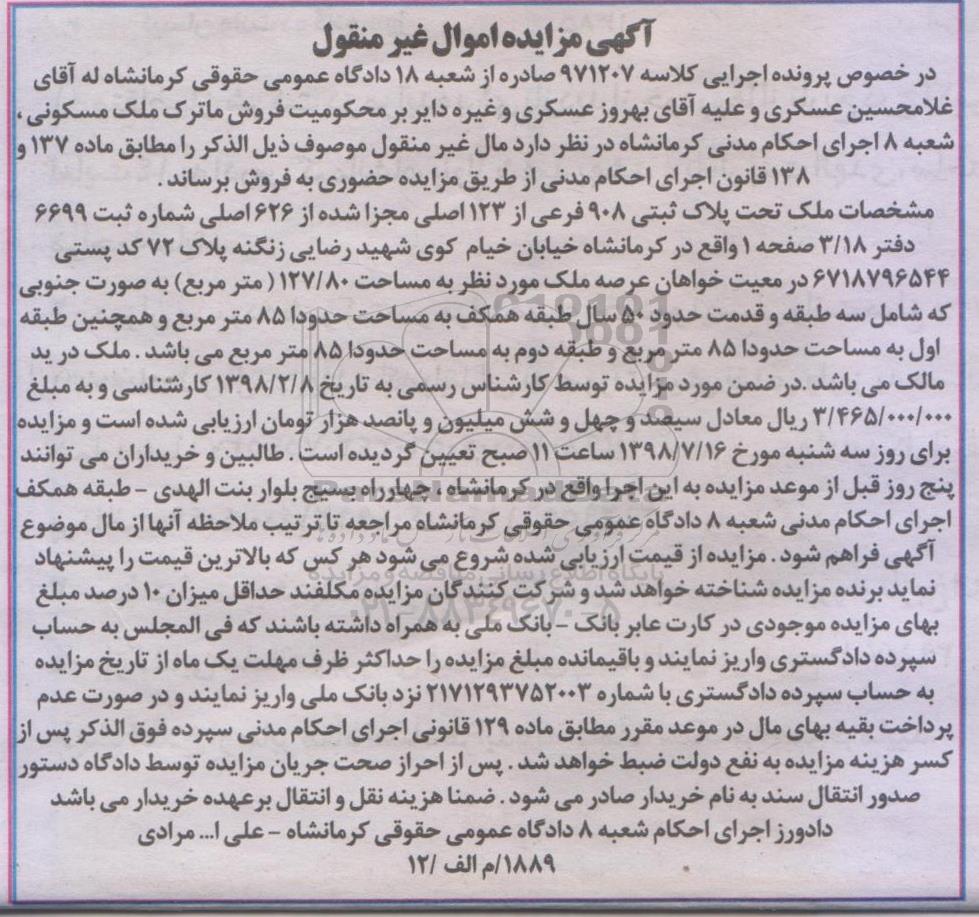 آگهی مزایده اموال غیر منقول
در خصوص پرونده اجرایی کلاسه ۹۷۱۲۰۷ صادره از شعبه ۱۸ دادگاه عمومی حقوقی کرمانشاه له آقای
غلامحسین عسکری و علیه آقای بهروز عسکری و غیره دایر بر محکومیت فروش ماترک ملک مسکونی ،
شعبه ۸ اجرای احکام مدنی کرمانشاه در نظر دارد مال غیر منقول موصوف ذیل الذکر را مطابق ماده ۱۳۷ و
۱۳۸ قانون اجرای احکام مدنی از طریق مزایده حضوری به فروش برساند .
مشخصات ملک تحت پلاک ثبتی ۹۰۸ فرعی از ۱۲۳ اصلی مجزا شده از ۶۲۶ اصلی شماره ثبت ۶۶۹۹
دفتر ۳/۱۸ صفحه ۱ واقع در کرمانشاه خیابان خیام کوی شهید رضایی زنگنه پلاک ۷۲ کد پستی
۶۷۱۸۷۹۶۵۴۴ در معیت خواهان عرصه ملک مورد نظر به مساحت ۱۲۷/۸۰ ( متر مربع) به صورت جنوبی
که شامل سه طبقه و قدمت حدود ۵۰ سال طبقه همکف به مساحت حدودا ۸۵ متر مربع و همچنین طبقه
اول به مساحت حدودا ۸۵ متر مربع و طبقه دوم به مساحت حدودا ۸۵ متر مربع می باشد . ملک در ید
مالک می باشد .در ضمن مورد مزایده توسط کارشناس رسمی به تاریخ ۱۳۹۸/۲/۸ کارشناسی و به مبلغ
۳/۴۶۵/۰۰۰/۰۰۰ ریال معادل سیصد و چهل و شش میلیون و پانصد هزار تومان ارزیابی شده است و مزایده
برای روز سه شنبه مورخ ۱۳۹۸/۷/۱۶ ساعت ۱۱ صبح تعیین گردیده است . طالبین و خریداران می توانند
پنج روز قبل از موعد مزایده به این اجرا واقع در کرمانشاه ، چهارراه بسیج بلوار بنت الهدی - طبقه همکف
اجرای احکام مدنی شعبه ۸ دادگاه عمومی حقوقی کرمانشاه مراجعه تا ترتیب ملاحظه آنها از مال موضوع
آگهی فراهم شود . مزایده از قیمت ارزیابی شده شروع می شود هر کس که بالاترین قیمت را پیشنهاد
نماید برنده مزایده شناخته خواهد شد و شرکت کنندگان مزایده مکلفند حداقل میزان ۱۰ درصد مبلغ
بهای مزایده موجودی در کارت عابر بانک - بانک ملی به همراه داشته باشند که فی المجلس به حساب
سپرده دادگستری واریز نمایند و باقیمانده مبلغ مزایده را حداکثر ظرف مهلت یک ماه از تاریخ مزایده
به حساب سپرده دادگستری با شماره ۲۱۷۱۲۹۳۷۵۲۰۰۳ نزد بانک ملی واریز نمایند و در صورت عدم
پرداخت بقیه بهای مال در موعد مقرر مطابق ماده ۱۲۹ قانونی اجرای احکام مدنی سپرده فوق الذکر پس از
کسر هزینه مزایده به نفع دولت ضبط خواهد شد . پس از احراز صحت جریان مزایده توسط دادگاه دستور
صدور انتقال سند به نام خریدار صادر می شود . ضمنا هزینه نقل و انتقال برعهده خریدار می باشد
دادورز اجرای احکام شعبه ۸ دادگاه عمومی حقوقی کرمانشاه - علی ا... مرادی
۱۸۸۹/م الف /۱۲
پایگاه اطلاع رسانی مناقصه و مزایده
۰۲۱-۸۸۳۴۹۶۷۰-۵